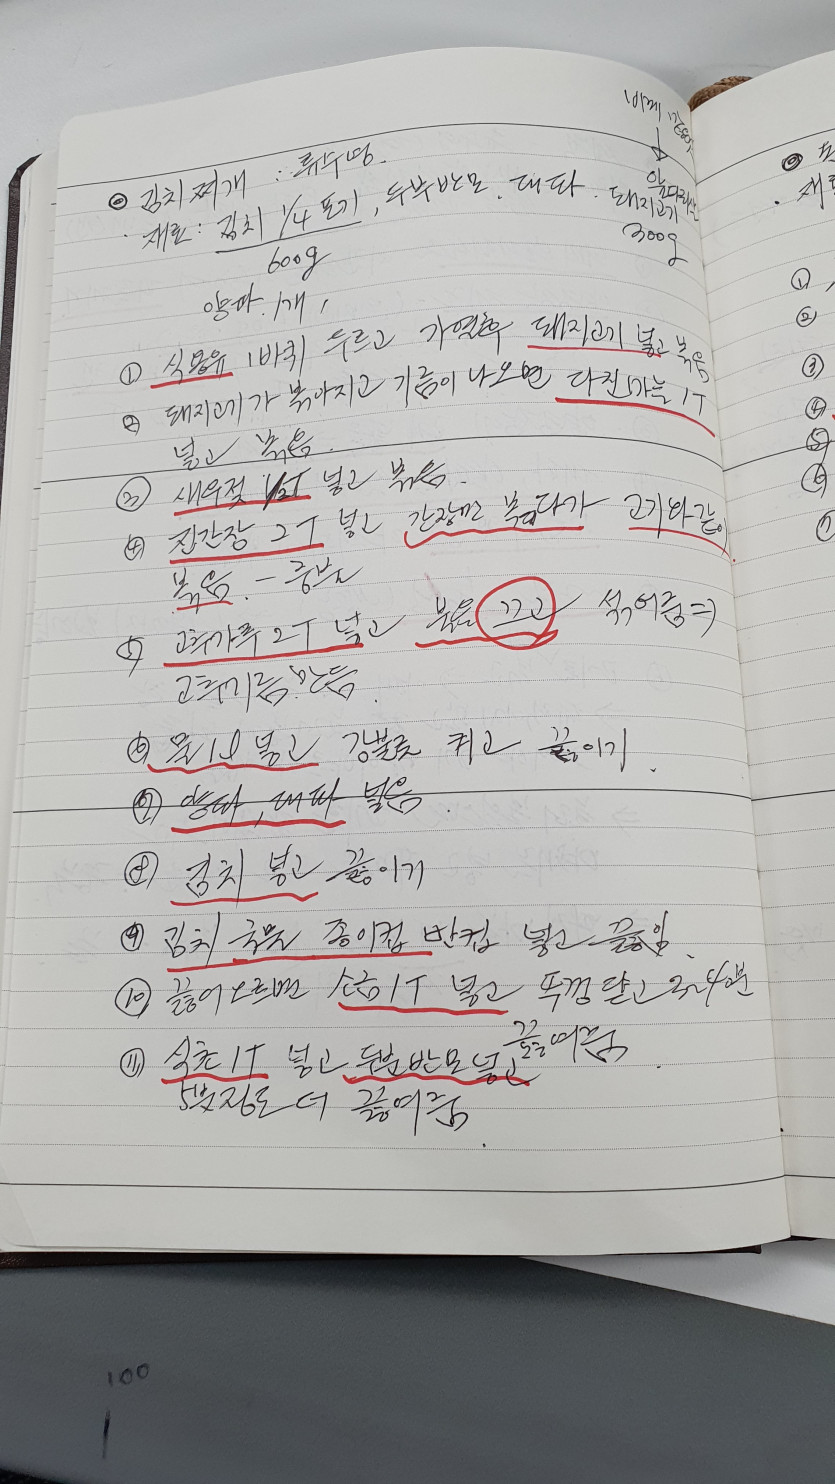 김치찌개 : 류수영.
· 재료: 김치 1/4 포기, 두부반모. 대파. 돼지고기
앞다리살
300g
600g
양파. 1개,
① 식용유 1바퀴 두르고 가열후 돼지고기 넣고 볶음
② 돼지고기가 볶아지고 기름이 나오면 다진마늘 1T
넣고 볶음.
③ 새우젓 넣고 볶음.
④ 진간장 2T 넣고 간장만 볶다가 고기와 같이
볶음. - 중불
⑤ 고추가루 2T 넣고 볶음 끄고 섞어줌 ⇒
고추기름 만듬.
⑥ 물 넣고 강불로 켜고 끓이기.
⑦ 양파, 대파 넣음.
⑧ 김치 넣고 끓이기
⑨ 김치 국물 종이컵 반컵 넣고 끓임.
⑩ 끓어오르면 소금1T 넣고 뚜껑 닫고 3~4분
끓여줌
⑪ 식초 1T 넣고 두부반모 넣고
5분정도 더 끓여줌.
①
②
③
④
⑤
⑥
⑦
100